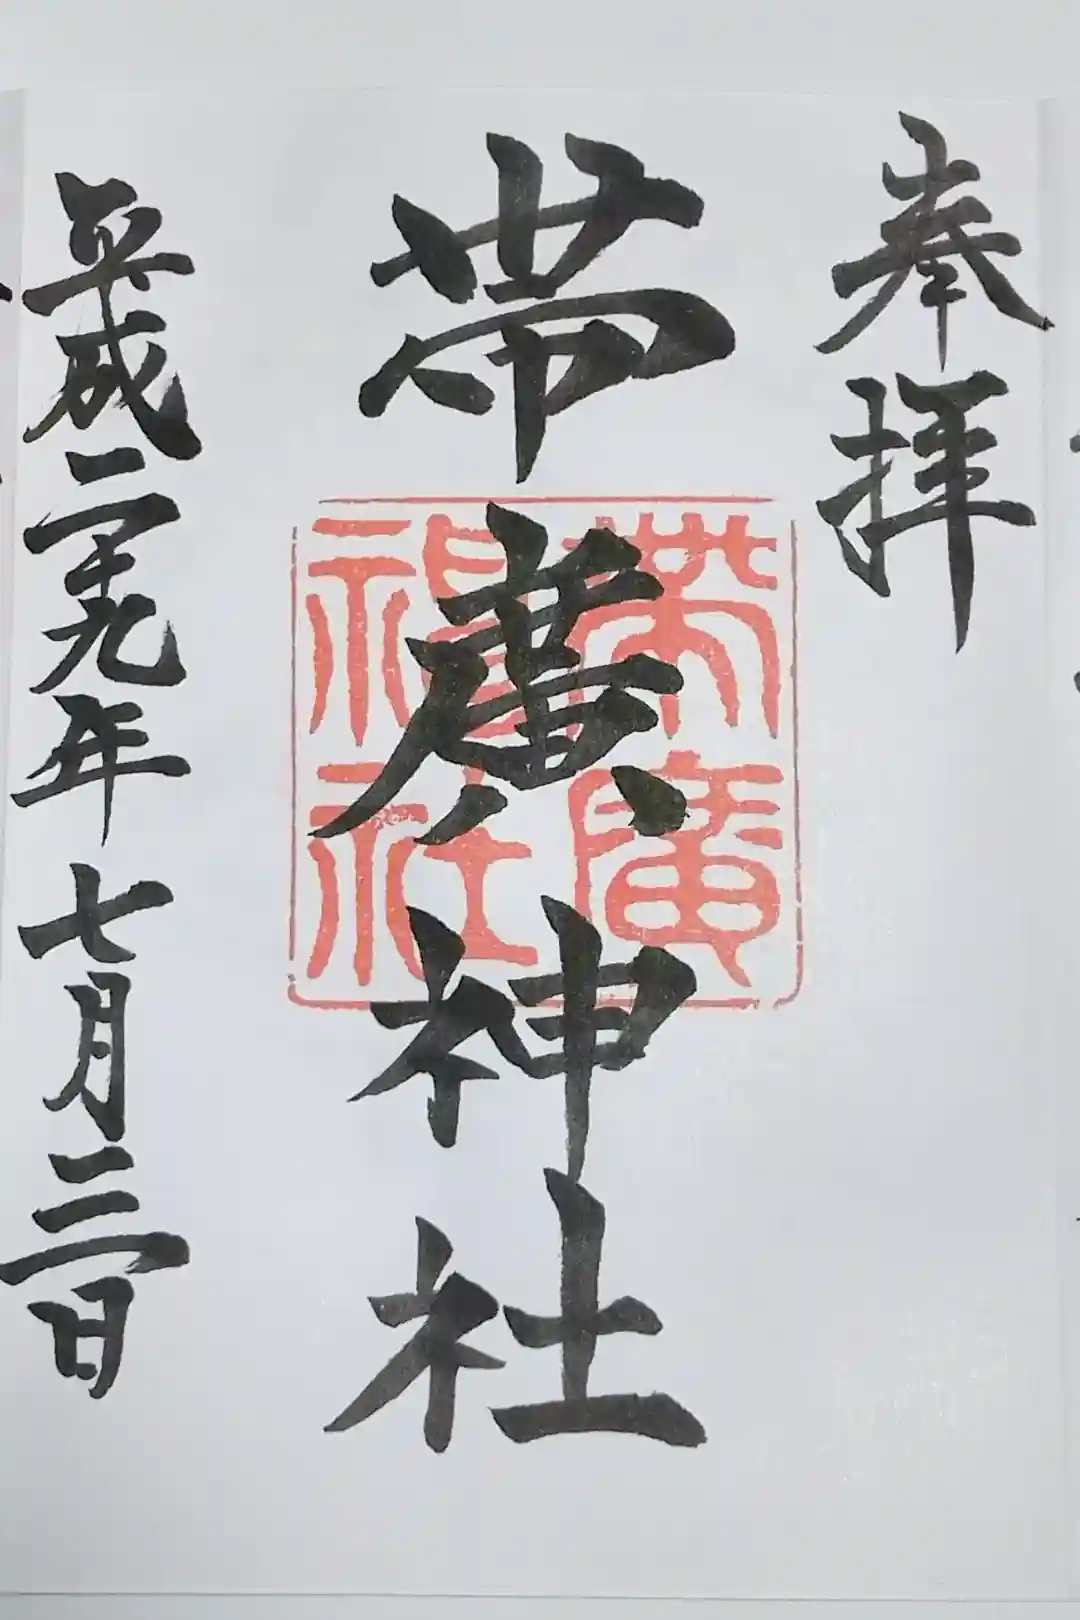 奉拝
帯廣神社
帯廣
神社
平成二十九年七月三日